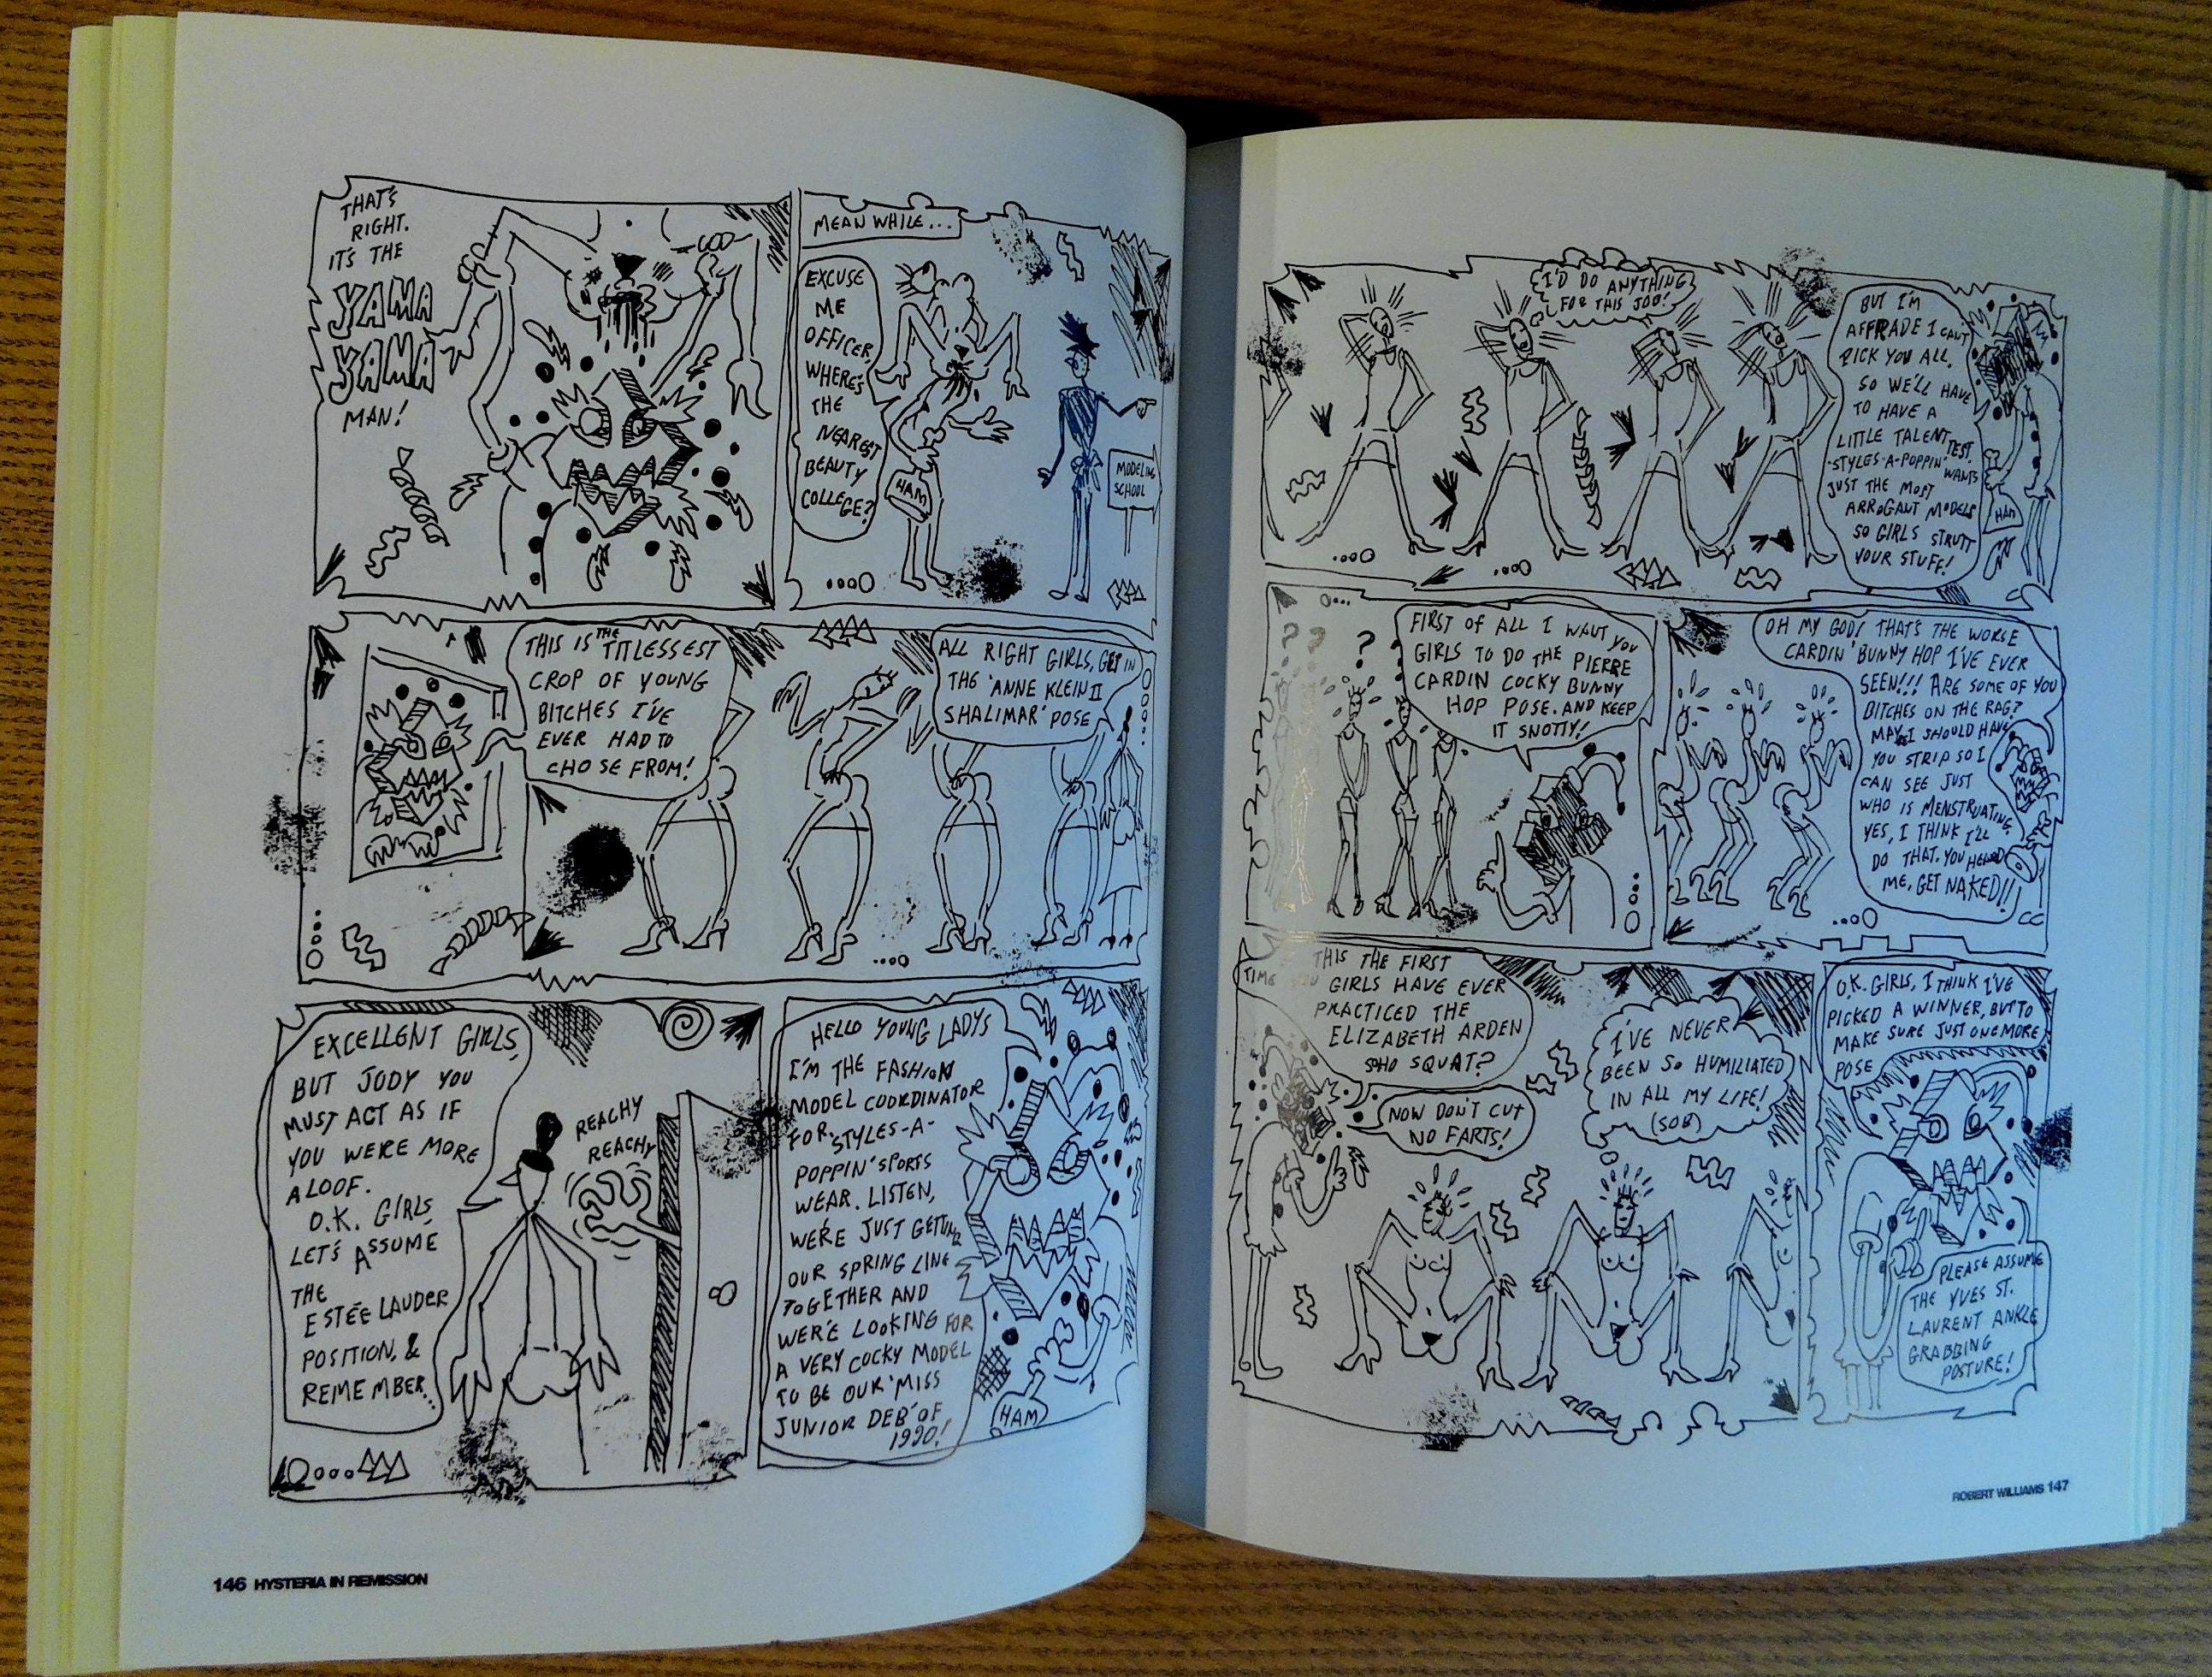 THAT'S
RIGHT.
IT'S THE
YAMA
YAMA
MAN!
MEAN WHILE...
EXCUSE
ME
OFFICER,
WHERE'S
THE
NEAREST
BEAUTY
COLLEGE?
HAM
MODELING
SCHOOL
THIS IS THE TITLESSEST
CROP OF YOUNG
BITCHES I'VE
EVER HAD TO
CHOSE FROM!
ALL RIGHT GIRLS, GET IN
THE 'ANNE KLEIN II
SHALIMAR' POSE
EXCELLENT GIRLS,
BUT JODY YOU
MUST ACT AS IF
YOU WERE MORE
ALOOF.
O.K. GIRLS,
LET'S ASSUME
THE
ESTÉE LAUDER
POSITION, &
REMEMBER...
REACHY
REACHY
HELLO YOUNG LADYS
I'M THE FASHION
MODEL COORDINATOR
FOR 'STYLES-A-
POPPIN' SPORTS
WEAR. LISTEN,
WE'RE JUST GETTING
OUR SPRING LINE
TOGETHER AND
WER'E LOOKING FOR
A VERY COCKY MODEL
TO BE OUR 'MISS
JUNIOR DEB' OF
1990!
HAM
146 HYSTERIA IN REMISSION
I'D DO ANYTHING
FOR THIS JOB!
BUT I'M
AFFRADE I CAN'T
PICK YOU ALL.
SO WE'LL HAVE
TO HAVE A
LITTLE TALENT TEST.
'STYLES-A-POPPIN' WANTS
JUST THE MOST
ARROGANT MODELS
SO GIRLS STRUTT
YOUR STUFF!
HAM
? ? ?
FIRST OF ALL I WANT YOU
GIRLS TO DO THE PIERRE
CARDIN COCKY BUNNY
HOP POSE. AND KEEP
IT SNOTTY!
OH MY GOD! THAT'S THE WORSE
CARDIN 'BUNNY HOP I'VE EVER
SEEN!!! ARE SOME OF YOU
BITCHES ON THE RAG?
MAY I SHOULD HAVE
YOU STRIP SO I
CAN SEE JUST
WHO IS MENSTRUATING.
YES, I THINK I'LL
DO THAT. YOU HEARD
ME, GET NAKED!!
THIS THE FIRST
TIME YOU GIRLS HAVE EVER
PRACTICED THE
ELIZABETH ARDEN
SOHO SQUAT?
NOW DON'T CUT
NO FARTS!
I'VE NEVER
BEEN SO HUMILIATED
IN ALL MY LIFE!
(SOB)
O.K. GIRLS, I THINK I'VE
PICKED A WINNER, BUT TO
MAKE SURE JUST ONE MORE
POSE
PLEASE ASSUME
THE YVES ST.
LAURENT ANKLE
GRABBING
POSTURE!
ROBERT WILLIAMS 147